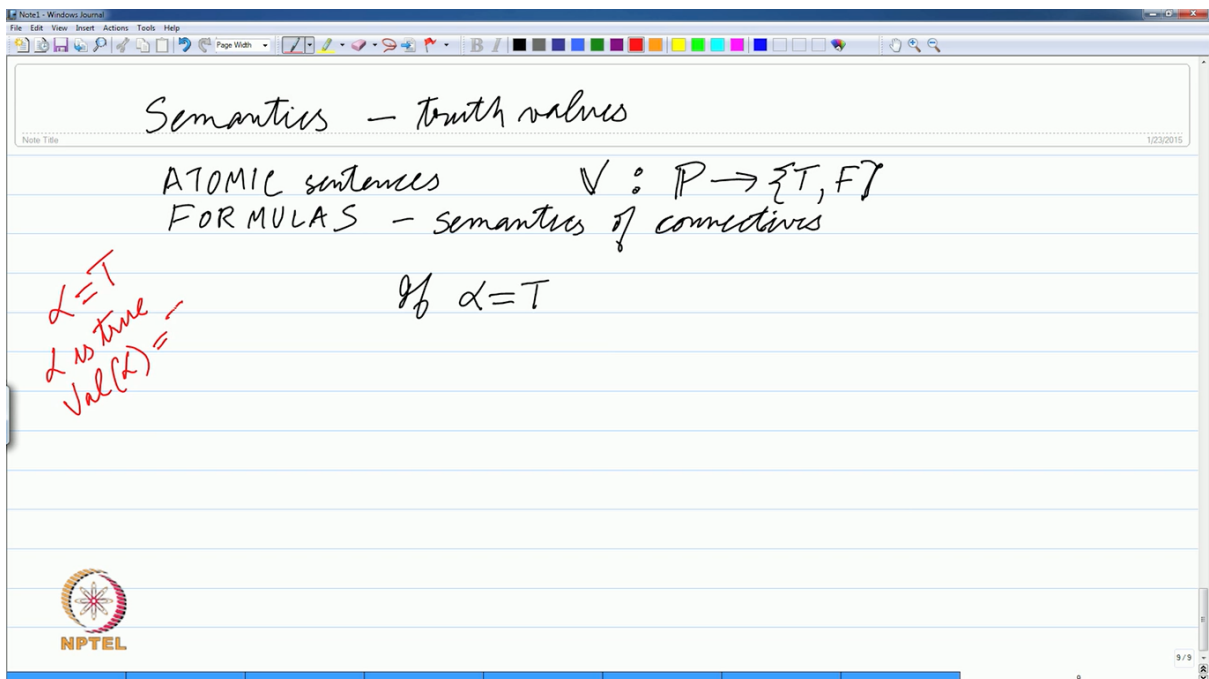 Note1 - Windows Journal
File Edit View Insert Actions Tools Help
Page Width
B I
Semantics – truth values
Note Title
1/23/2015
ATOMIC sentences V : P → {T, F}
FORMULAS – semantics of connectives
If α = T
α = T
α is true
Val(α) =
NPTEL
9 / 9